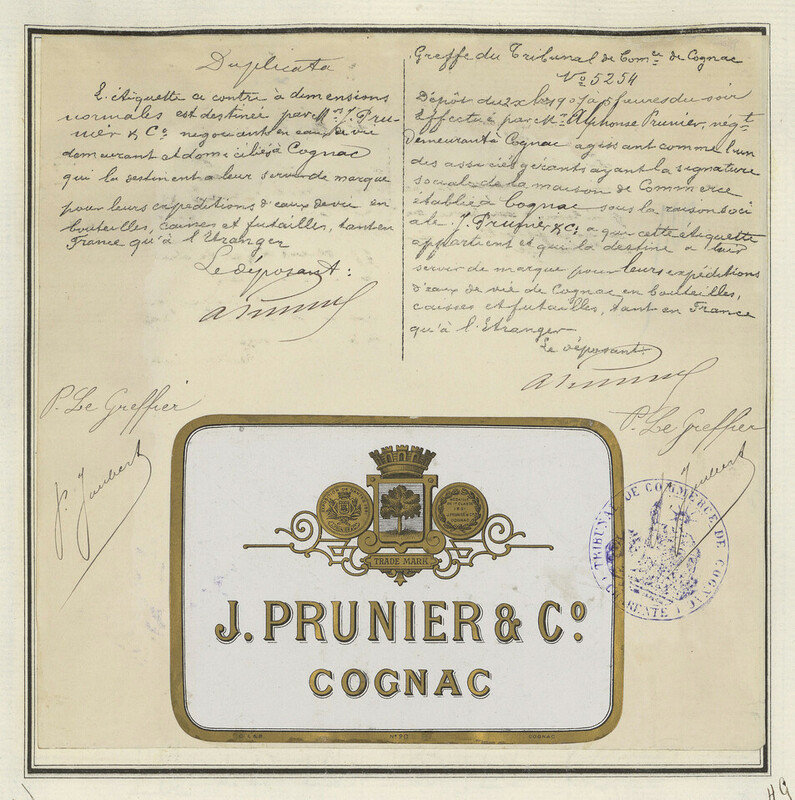 Duplicata
L'étiquette ci contre à dimensions
normales est destinée par Mrs J. Pru-
nier & Co. negociant en eaux de vie
demeurant et domiciliés à Cognac
qui la destinent a leur server de marque
pour leurs expéditions d'eaux de vie en
bouteilles, caisses et futailles, tant en
France qu'à l'Etranger
Le déposant :
A Prunier
P. Le Greffier
J. Jaubert
Greffe du Tribunal de Comce de Cognac
No 5254
Dépôt du à 5 heures du soir
Effectué par Mr Alphonse Prunier, négt
demeurant à Cognac agissant comme l'un
des associés gérants ayant la signature
sociale de la maison de Commerce
établie à Cognac sous la raison soci
ale J. Prunier & Co. a qui cette étiquette
appartient et qui la destine a leur
server de marque pour leurs expéditions
d'eaux de vie de Cognac en bouteilles,
caisses et futailles, tant en France
qu'à l'Etranger
Le déposant
A Prunier
P. Le Greffier
Jaubert
TRIBUNAL DE COMMERCE DE COGNAC
CHARENTE
COGNAC
TRADE MARK
J. PRUNIER & Co
COGNAC
No 20
COGNAC